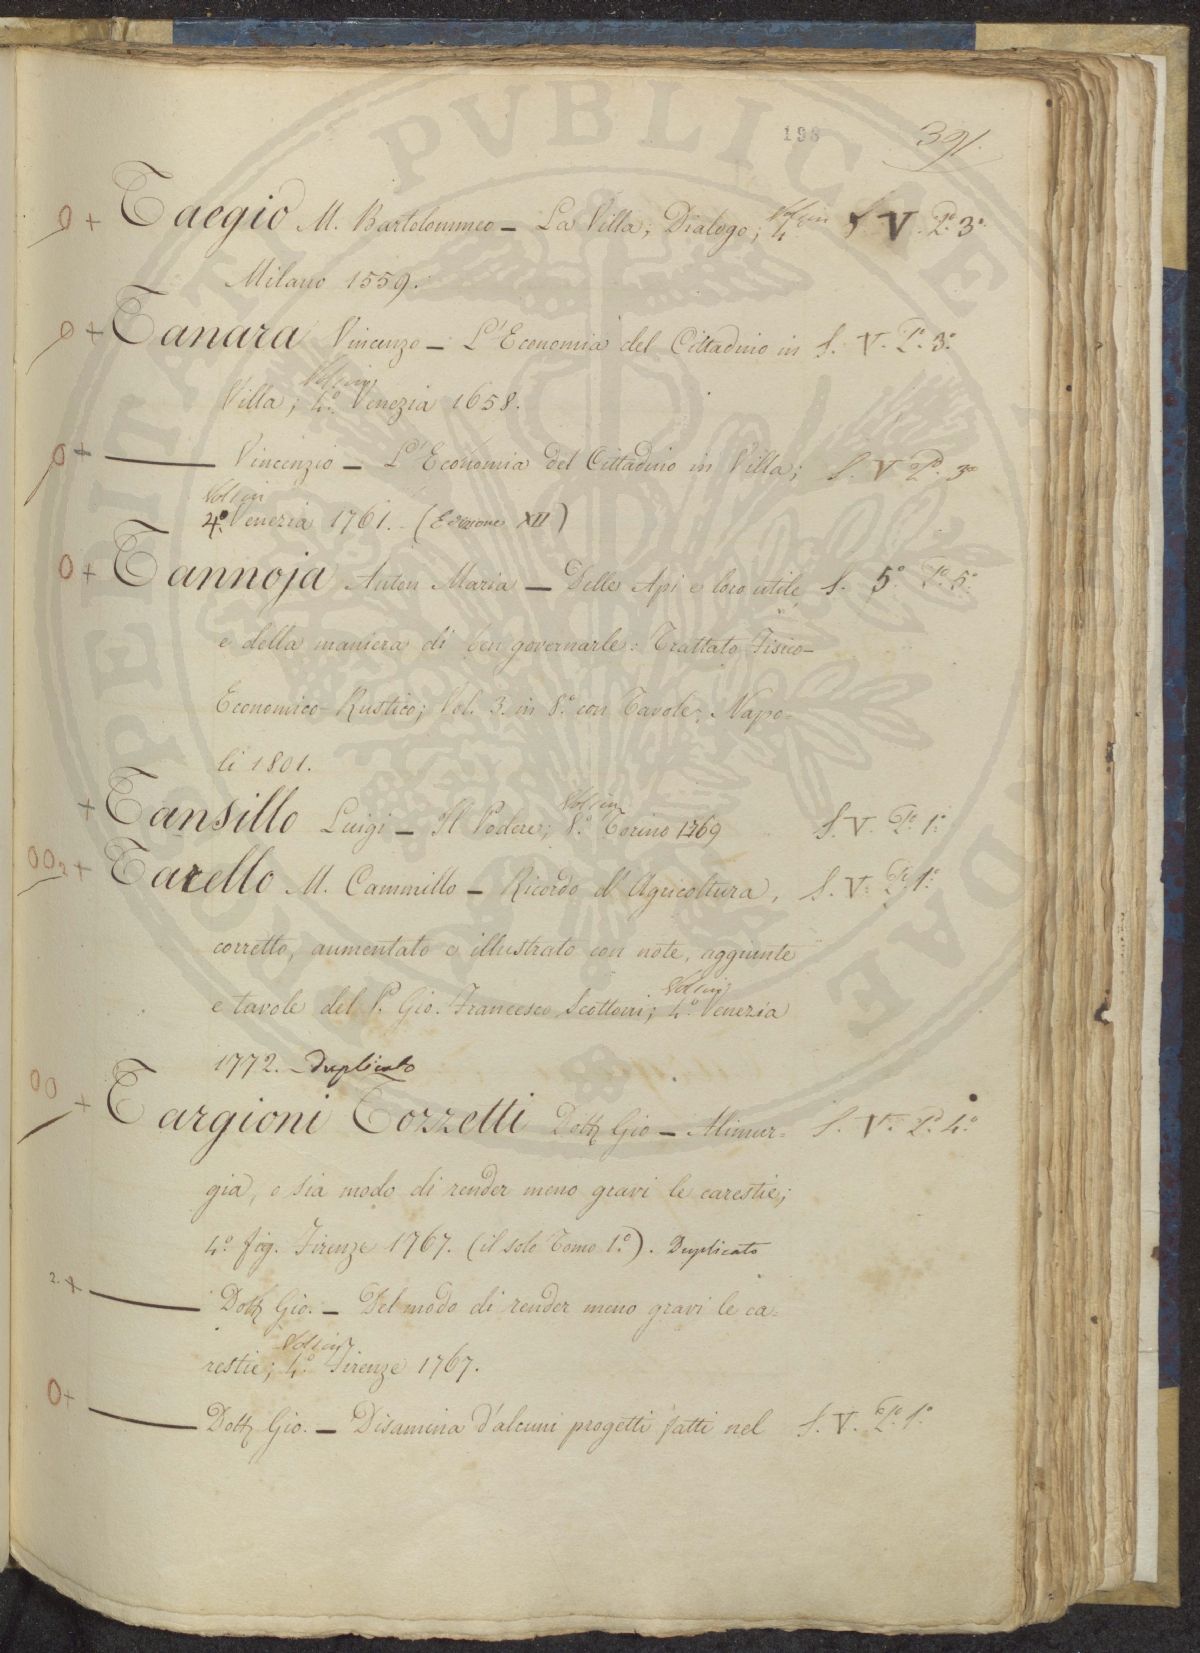 198 391.
0 + Taegio M. Bartolommeo – La Villa, Dialogo; Vol. in 4.° S. V. P.° 3.°
Milano 1559.
0 + Tanara Vincenzo – L'Economia del Cittadino in S. V. P.° 3.°
Villa; Vol. in 4.° Venezia 1658.
0 + —— Vincenzio – L'Economia del Cittadino in Villa; S. V. P.° 3.°
Vol. in 4.° Venezia 1761. – (Edizione XII)
0 + Tannoja Anton Maria – Delle Api e loro utile, S. 5.° P.° 5.°
e della maniera di ben governarle: Trattato Fisico–
Economico–Rustico; Vol. 3. in 8.° con Tavole, Napo=
li 1801.
+ Tansillo Luigi – Il Podere; Vol. in 8.° Torino 1769 S. V. P.° 1.°
00 2 + Tarello M. Cammillo – Ricordo d'Agricoltura, S. V. P.° 1.°
corretto, aumentato e illustrato con note, aggiunte
e tavole del P. Gio. Francesco Scottoni; Vol. in 4.° Venezia
1772. – Duplicato
00 + Targioni Tozzetti Dott. Gio – Alimur= S. V. P.° 4.°
gia, o sia modo di render meno gravi le carestie;
4.° fig. Firenze 1767. (il solo Tomo 1.°). Duplicato
2. + —— Dott. Gio. – Del modo di render meno gravi le ca=
restie; Vol. in 4.° Firenze 1767.
0 + —— Dott. Gio. – Disamina d'alcuni progetti fatti nel S. V. P.° 1.°
PROSPERITATI PUBLICAE AUGENDAE